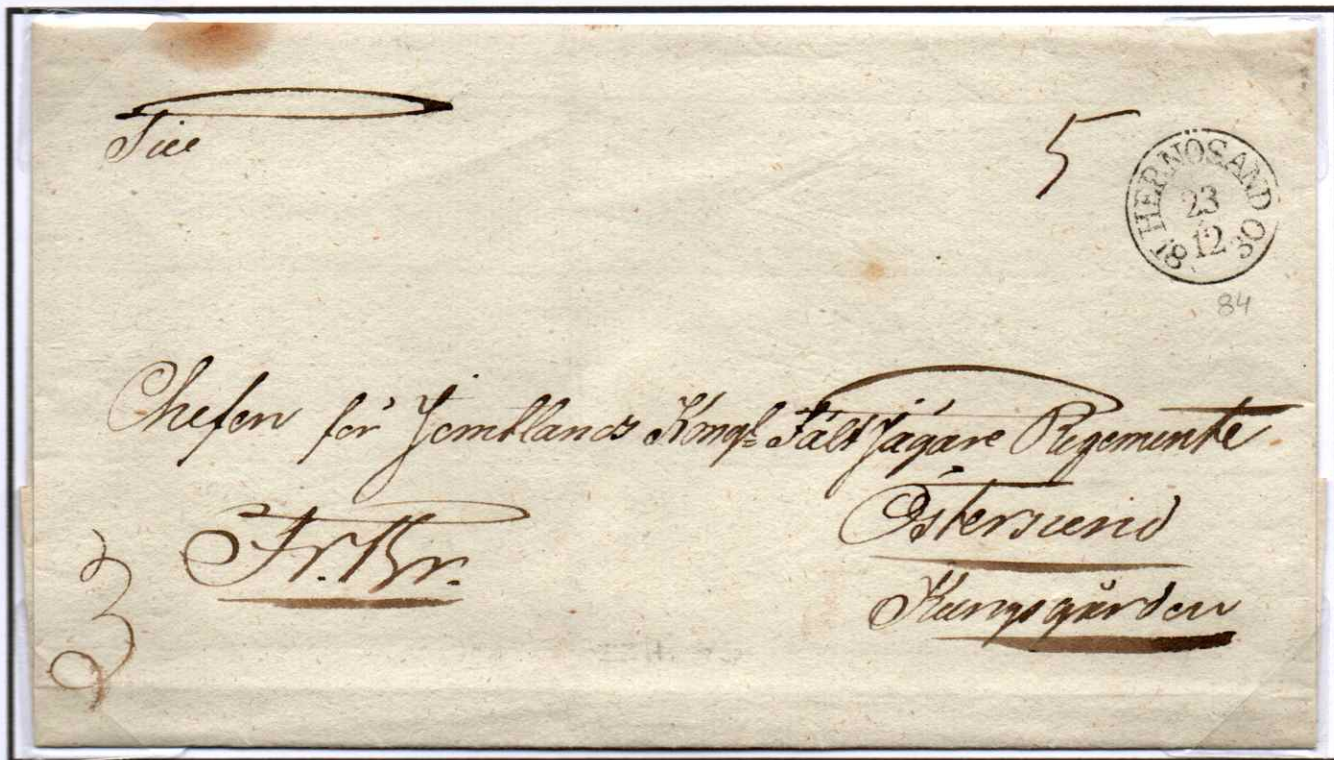 Till
5
HERNÖSAND
23
12
18 30
84
Chefen för Jemtlands Kongl. Fält Jägare Regemente
Östersund
Fr. Br.
Kungsgården
3